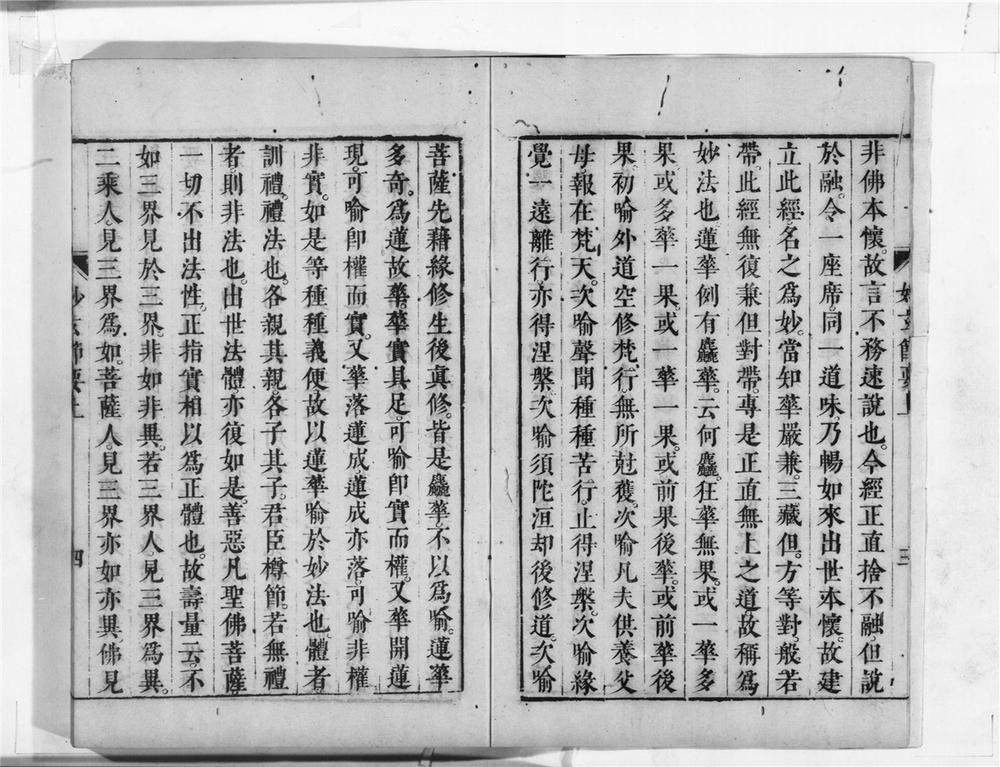 非佛本懷。故言不務速說也。今經正直捨不融。但說
於融。令一座席。同一道味。乃暢如來出世本懷。故建
立此經。名之爲妙。當知華嚴兼。三藏但。方等對。般若
帶。此經無復兼但對帶。專是正直無上之道。故稱爲
妙法也。蓮華例有麤華。云何麤。狂華無果。或一華多
果。或多華一果。或一華一果。或前果後華。或前華後
果。初喻外道空修梵行。無所尅獲。次喻凡夫供養父
母。報在梵天。次喻聲聞種種苦行。止得涅槃。次喻緣
覺一遠離行。亦得涅槃。次喻須陀洹却後修道。次喻
妙玄節要上
三
菩薩先藉緣修生後眞修。皆是麤華。不以爲喻。蓮華
多奇。爲蓮故華。華實具足。可喻卽實而權。又華開蓮
現。可喻卽權而實。又華落蓮成。蓮成亦落。可喻非權
非實。如是等種種義便。故以蓮華喻於妙法也。體者
訓禮。禮法也。各親其親。各子其子。君臣樽節。若無禮
者。則非法也。出世法體亦復如是。善惡凡聖佛菩薩
一切不出法性。正指實相以爲正體也。故壽量云。不
如三界見於三界。非如非異。若三界人。見三界爲異。
二乘人。見三界爲如。菩薩人。見三界亦如亦異。佛見
妙玄節要上
四